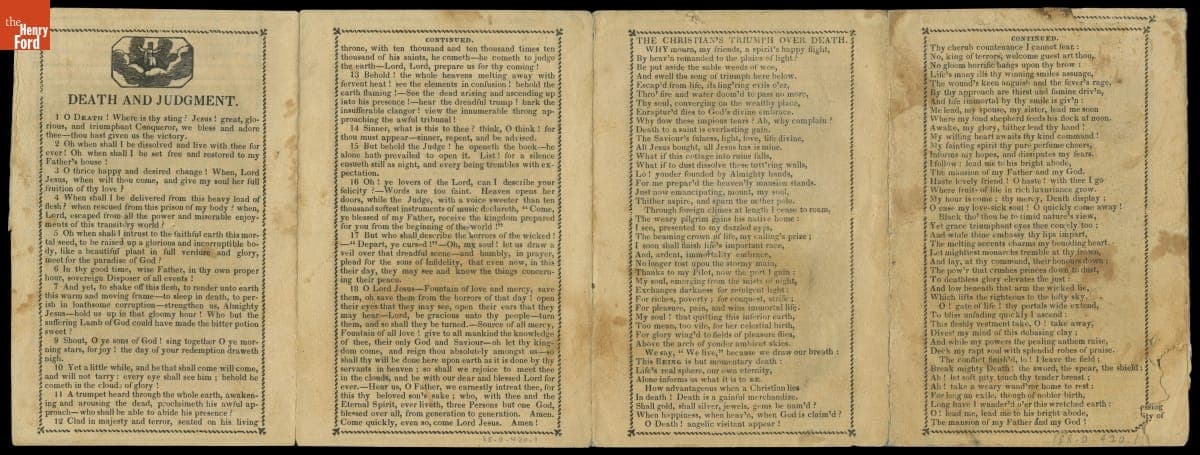 the
Henry
Ford
DEATH AND JUDGMENT.
1 O DEATH! Where is thy sting? Jesus! great, glo-
rious, and triumphant Conqueror, we bless and adore
thee—thou hast given us the victory.
2 Oh when shall I be dissolved and live with thee for
ever! Oh when shall I be set free and restored to my
Father's house!
3 O thrice happy and desired change! When, Lord
Jesus, when wilt thou come, and give my soul her full
fruition of thy love?
4 When shall I be delivered from this heavy load of
flesh? when rescued from this prison of my body? when,
Lord, escaped from all the power and miserable enjoy-
ments of this transitory world?
5 Oh when shall I intrust to the faithful earth this mor-
tal seed, to be raised up a glorious and incorruptible bo-
dy, like a beautiful plant in full verdure and glory,
meet for the paradise of God?
6 In thy good time, wise Father, in thy own proper
hour, sovereign Disposer of all events!
7 And yet, to shake off this flesh, to render unto earth
this warm and moving frame—to sleep in death, to per-
ish in loathsome corruption—strengthen us, Almighty
Jesus—hold us up in that gloomy hour! Who but the
suffering Lamb of God could have made the bitter potion
sweet?
9 Shout, O ye sons of God! sing together O ye mor-
ning stars, for joy! the day of your redemption draweth
nigh.
10 Yet a little while, and he that shall come will come,
and will not tarry: every eye shall see him; behold he
cometh in the clouds of glory!
11 A trumpet heard through the whole earth, awaken-
ing and arousing the dead, proclaimeth his awful ap-
proach—who shall be able to abide his presence?
12 Clad in majesty and terror, seated on his living
CONTINUED.
throne, with ten thousand and ten thousand times ten
thousand of his saints, he cometh—he cometh to judge
the earth—Lord, Lord, prepare us for thy coming!
13 Behold! the whole heavens melting away with
fervent heat! see the elements in confusion! behold the
earth flaming!—See the dead arising and ascending up
into his presence!—hear the dreadful trump! hark the
insufferable clangor! view the innumerable throng ap-
proaching the awful tribunal!
14 Sinner, what is this to thee? think, O think! for
thou must appear—sinner, repent, and be advised.
15 But behold the Judge! he openeth the book—he
alone hath prevailed to open it. List! for a silence
ensueth still as night, and every being trembles with ex-
pectation.
16 Oh! ye lovers of the Lord, can I describe your
felicity?—Words are too faint. Heaven opens her
doors, while the Judge, with a voice sweeter than ten
thousand softest instruments of music declareth, "Come,
ye blessed of my Father, receive the kingdom prepared
for you from the beginning of the world!"
17 But who shall describe the horrors of the wicked!
—"Depart, ye cursed!"—Oh, my soul! let us draw a
veil over that dreadful scene—and humbly, in prayer,
plead for the sons of infidelity, that even now, in this
their day, they may see and know the things concern-
ing their peace.
18 O Lord Jesus—Fountain of love and mercy, save
them, oh save them from the horrors of that day! open
their eyes that they may see, open their ears that they
may hear—Lord, be gracious unto thy people—turn
them, and so shall they be turned.—Source of all mercy,
Fountain of all love! give to all mankind the knowledge
of thee, their only God and Saviour—oh let thy king-
dom come, and reign thou absolutely amongst us—so
shall thy will be done here upon earth as it is done by thy
servants in heaven; so shall we rejoice to meet thee
in the clouds, and be with our dear and blessed Lord for
ever.—Hear us, O Father, we earnestly intreat thee, for
this thy beloved son's sake; who, with thee and the
Eternal Spirit, ever liveth, three Persons but one God,
blessed over all, from generation to generation. Amen.
Come quickly, even so, come Lord Jesus. Amen!
58.0.420.1
THE CHRISTIAN'S TRIUMPH OVER DEATH.
WHY mourn, my friends, a spirit's happy flight,
By heav'n remanded to the plains of light?
Be put aside the sable weeds of woe,
And swell the song of triumph here below.
Escap'd from life, its ling'ring evils o'er,
Thro' fire and water doom'd to pass no more,
Thy soul, converging on the wealthy place,
Enraptur'd flies to God's divine embrace.
Why flow these impious tears? Ah, why complain?
Death to a saint is everlasting gain.
The Saviour's fulness, light, love, life divine,
All Jesus bought, all Jesus has is mine.
What if this cottage into ruins falls,
What if to dust dissolve these tott'ring walls,
Lo! yonder founded by Almighty hands,
For me prepar'd the heav'nly mansion stands.
Just now emancipating, mount, my soul,
Thither aspire, and spurn the nether pole.
Through foreign climes at length I cease to roam,
The weary pilgrim gains his native home:
I see, presented to my dazzled eyes,
The beaming crown of life, my calling's prize;
I soon shall finish life's important race,
And, ardent, immortality embrace,
No longer tost upon the stormy main,
Thanks to my Pilot, now the port I gain:
My soul, emerging from the mists of night,
Exchanges darkness for refulgent light:
For riches, poverty; for conquest, strife;
For pleasure, pain, and wins immortal life.
My soul! that quitting this inferior earth,
Too mean, too vile, for her celestial birth,
For glory wing'd to fields of pleasure flies,
Above the arch of yonder ambient skies.
We say, "We live," because we draw our breath:
This BEING is but momentary death:
Life's real sphere, our own eternity,
Alone informs us what it is to BE.
How advantageous when a Christian dies
In death! Death is a gainful merchandize.
Shall gold, shall silver, jewels, gems be nam'd?
When happiness, when heav'n, when God is claim'd?
O Death! angelic visitant appear!
CONTINUED.
Thy cherub countenance I cannot fear:
No, king of terrors, welcome guest art thou,
No gloom horrific hangs upon thy brow:
Life's many ills thy winning smiles assuage,
The wound's keen anguish and the fever's rage,
By thy approach are thirst and famine driv'n,
And life immortal by thy smile is giv'n:
Me lead, my spouse, my sister, lead me soon
Where my fond shepherd feeds his flock at noon.
Awake, my glory, hither lead thy hand!
My willing heart awaits thy kind command!
My fainting spirit thy pure perfume cheers,
Informs my hopes, and dissipates my fears.
I follow: lead me to his bright abode,
The mansion of my Father and my God.
Haste lovely friend! O haste! with thee I go
Where fruits of life in rich luxuriance grow.
My hour is come: thy mercy, Death display;
O ease my love-sick soul! O quickly come away!
Black tho' thou be to timid nature's view,
Yet grace triumphant eyes thee comely too;
And while thine embassy thy lips impart,
The melting accents charm my bounding heart.
Let mightiest monarchs tremble at thy frown,
And lay, at thy command, their honours down:
The pow'r that crushes princes down to dust,
To deathless glory elevates the just:
And low beneath that arm the wicked lie,
Which lifts the righteous to the lofty sky.
O! gate of life! thy portals wide extend,
To bliss unfading quickly I ascend:
This fleshly vestment take, O! take away;
Divest my mind of this debasing clay;
And while my powers the pealing anthem raise,
Deck my rapt soul with splendid robes of praise.
The conflict finish'd, lo! I leave the field;
Break mighty Death! the sword, the spear, the shield:
Ah! let soft pity, touch thy tender breast;
Ah! take a weary wand'rer home to rest:
For long an exile, though of nobler birth,
Long have I wander'd o'er this wretched earth:
O! lead me, lead me to his bright abode,
The mansion of my Father and my God!
ity of
58.0.420.1